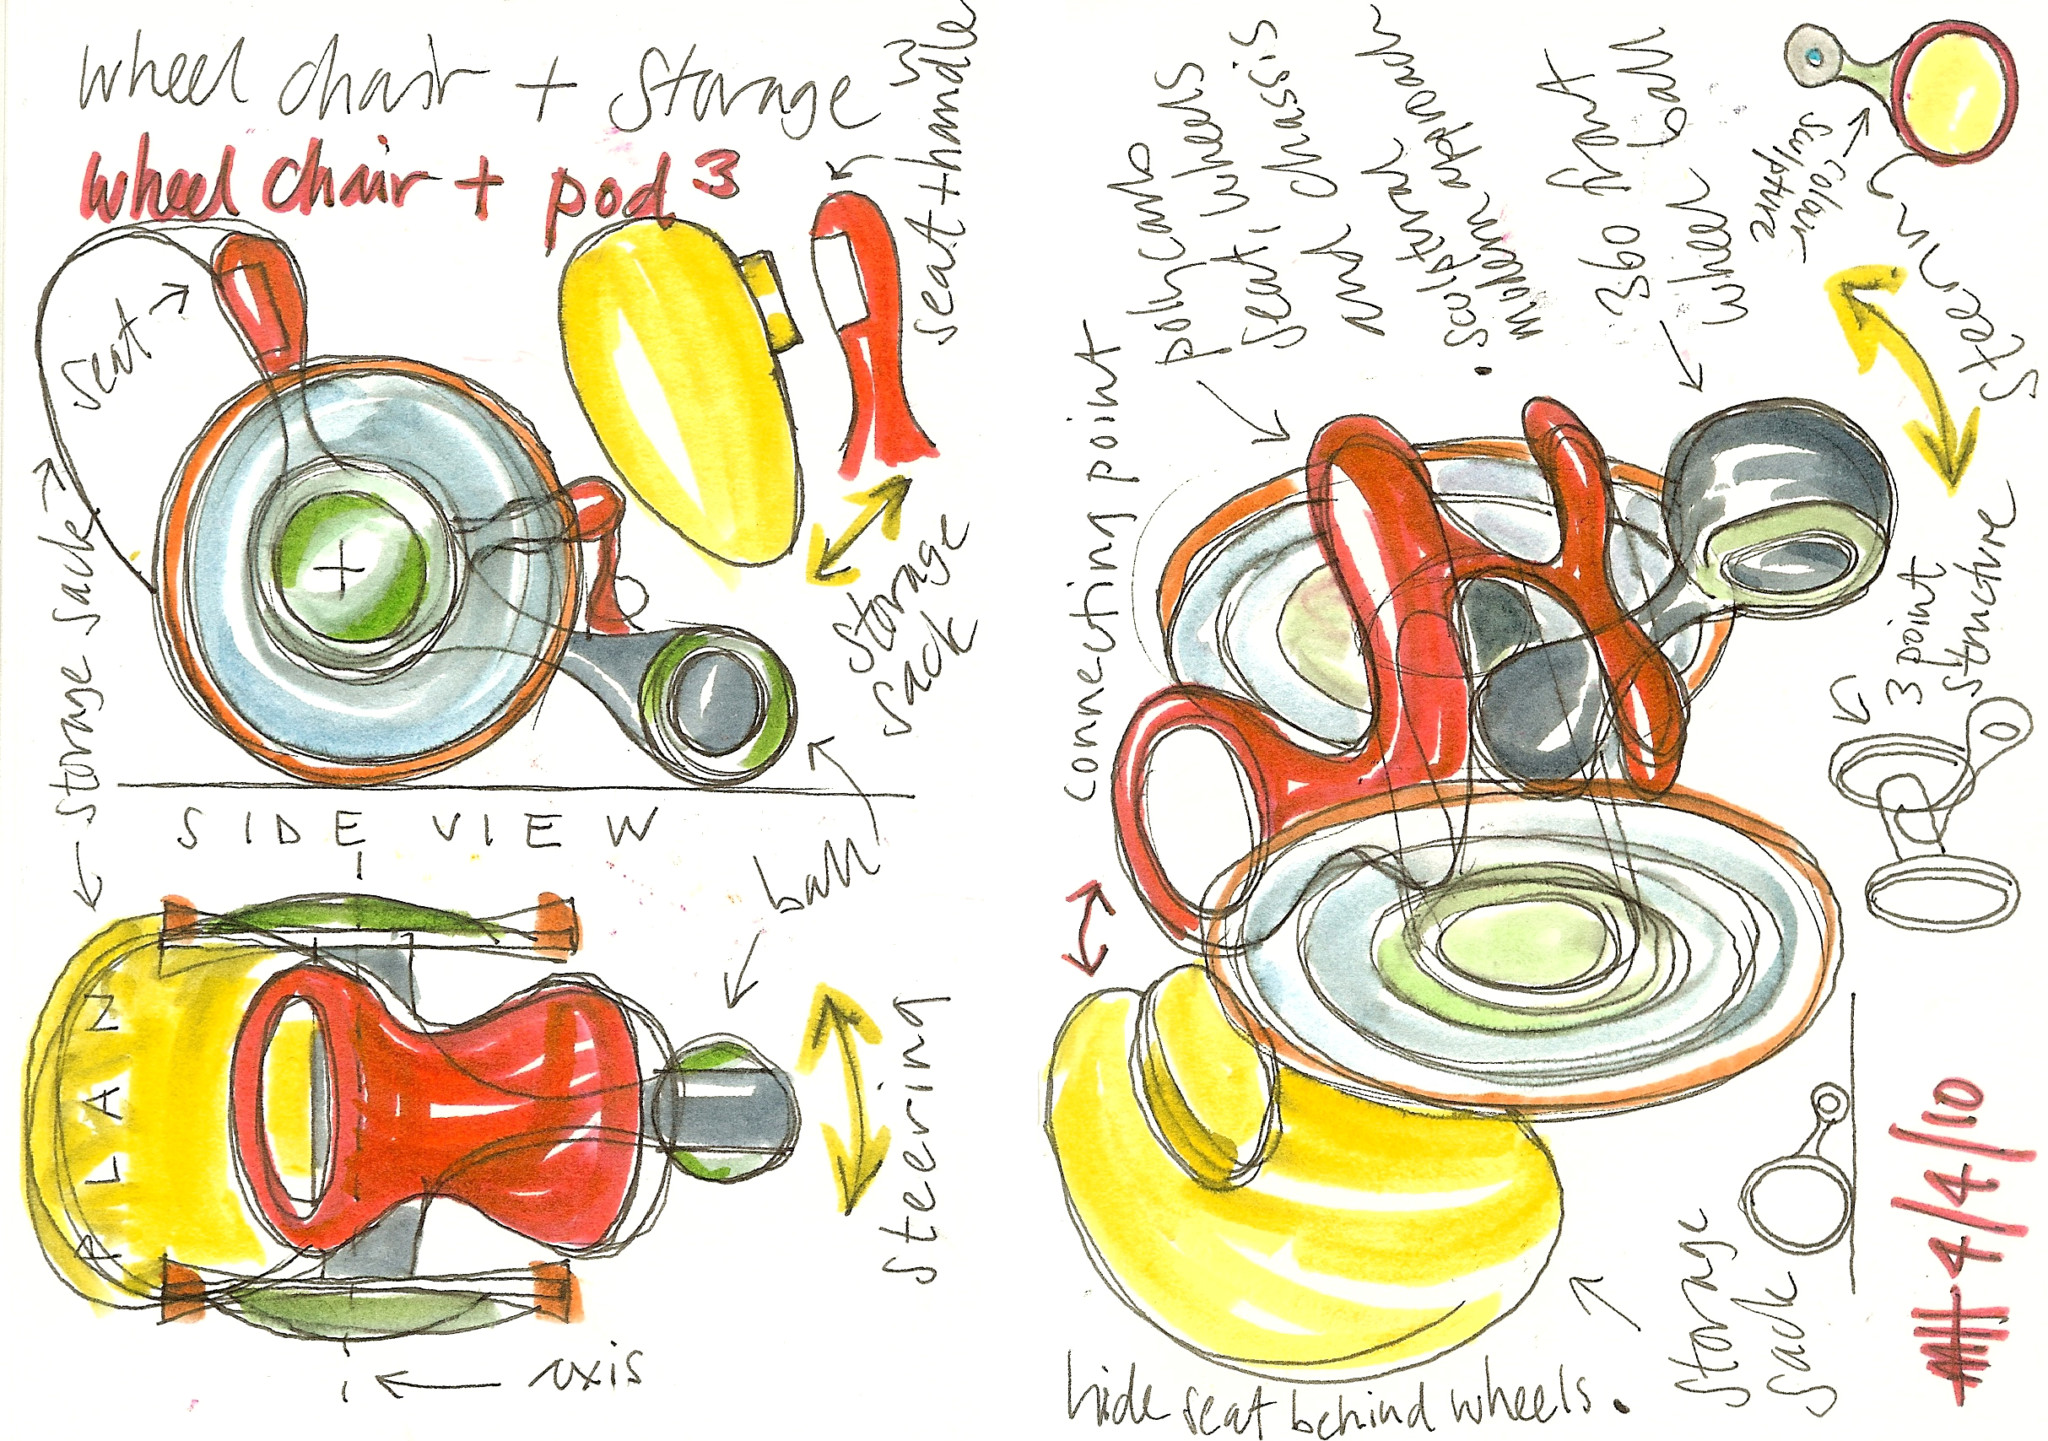 wheel chair + storage 3
wheel chair + pod 3
seat + handle
seat
storage sack
storage
sack
SIDE VIEW
ball
PLAN
steering
axis
polycarb
seat, wheels
and chassis
sculptural
modern approach
360 front
wheel ball
colour
sculpture
steering
connecting point
3 point
structure
storage
sack
hide seat behind wheels.
4/4/10